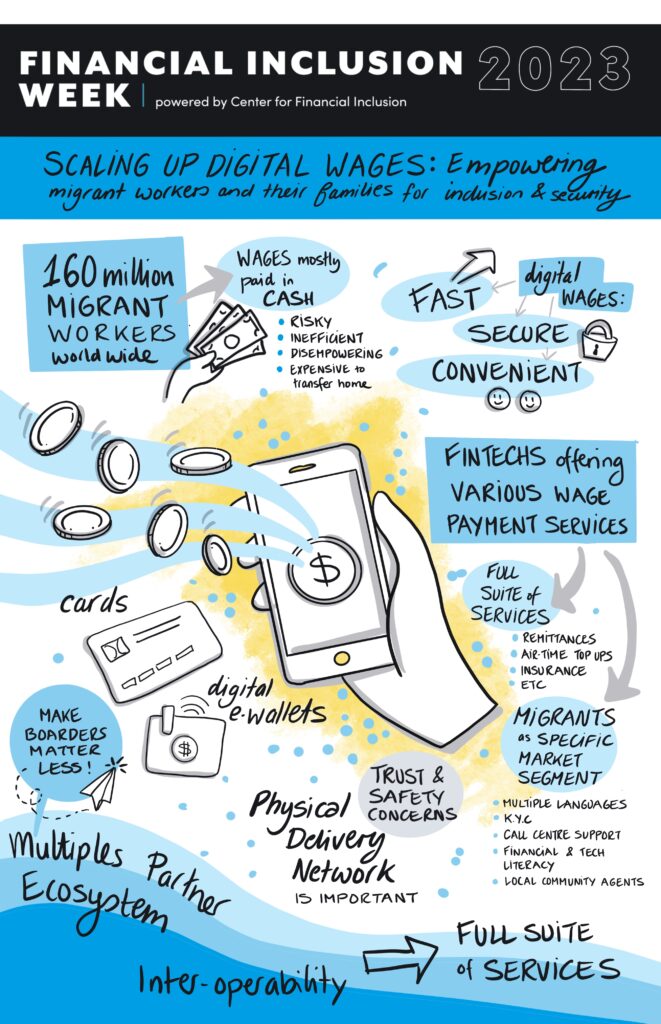 FINANCIAL INCLUSION
WEEK | powered by Center for Financial Inclusion
2023
SCALING UP DIGITAL WAGES: Empowering
migrant workers and their families for inclusion & security
160 million
MIGRANT
WORKERS
world wide
WAGES mostly
paid in
CASH
• RISKY
• INEFFICIENT
• DISEMPOWERING
• EXPENSIVE to
transfer home
digital
WAGES:
FAST
SECURE
CONVENIENT
FINTECHS offering
VARIOUS WAGE
PAYMENT SERVICES
FULL
SUITE of
SERVICES
• REMITTANCES
• AIR-TIME TOP UPS
• INSURANCE
• ETC
MIGRANTS
as SPECIFIC
MARKET
SEGMENT
• MULTIPLE LANGUAGES
• K.Y.C
• CALL CENTRE SUPPORT
• FINANCIAL & TECH
LITERACY
• LOCAL COMMUNITY AGENTS
$
cards
digital
e-wallets
$
MAKE
BOARDERS
MATTER
LESS!
TRUST &
SAFETY
CONCERNS
Physical
Delivery
Network
IS IMPORTANT
Multiples Partner
Ecosystem
Inter-operability
FULL SUITE
of SERVICES